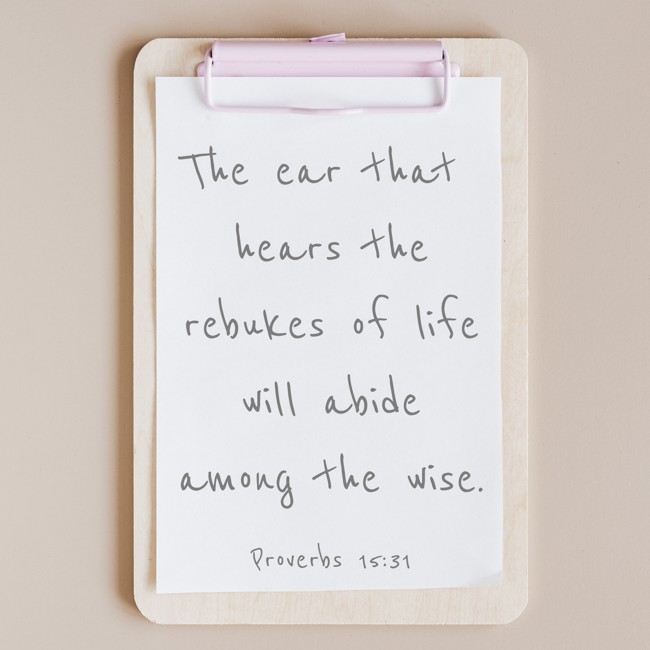 The ear that
hears the
rebukes of life
will abide
among the wise.
Proverbs 15:31